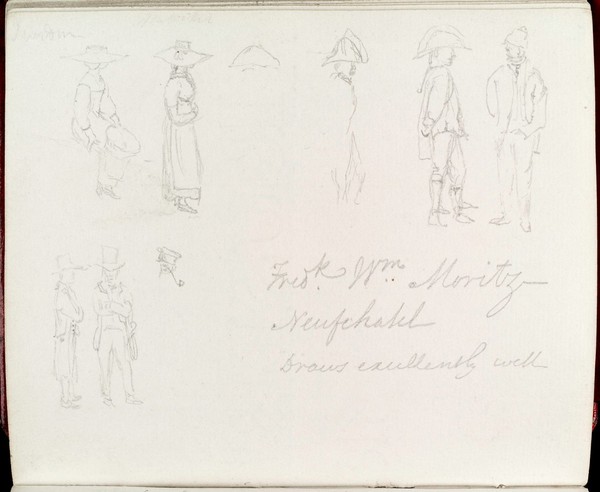 Fredk. Wm. Moritz
Neufchatel
Draws excellently well